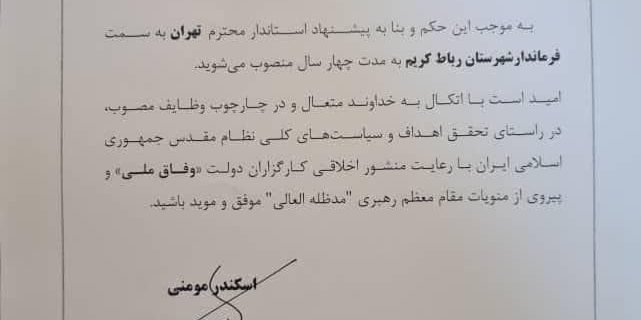 به موجب این حکم و بنا به پیشنهاد استاندار محترم تهران به سمت
فرماندارشهرستان رباط کریم به مدت چهار سال منصوب می‌شوید.
امید است با اتکال به خداوند متعال و در چارچوب وظایف مصوب،
در راستای تحقق اهداف و سیاست‌های کلی نظام مقدس جمهوری
اسلامی ایران با رعایت منشور اخلاقی کارگزاران دولت «وفاق ملی» و
پیروی از منویات مقام معظم رهبری "مدظله العالی" موفق و موید باشید.
اسکندر مومنی